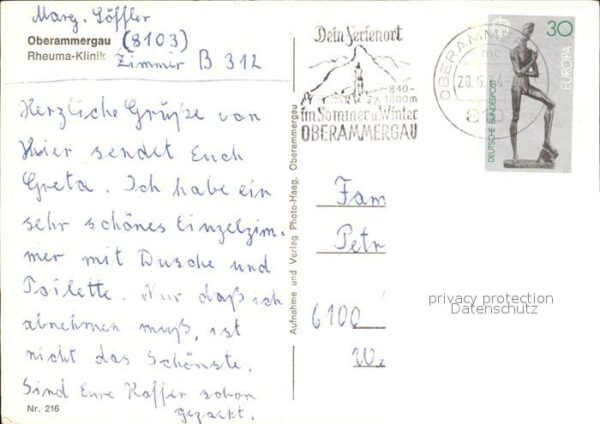 Marg. Löffler
Oberammergau (8103)
Rheuma-Klinik Zimmer B 312
Herzliche Grüße von
Hier sendet Euch
Greta. Ich habe ein
sehr schönes Einzelzim-
mer mit Dusche und
Toilette. Nur daß ich
abnehmen muß, ist
nicht das Schönste.
Sind Eure Koffer schon
gepackt.
Nr. 216
Aufnahme und Verlag Photo-Haag, Oberammergau
Dein Ferienort
840-
1800m
im Sommer u. Winter
OBERAMMERGAU
OBERAMM
20.5.
30
EUROPA
DEUTSCHE BUNDESPOST
Fam
Petr
6100
We
privacy protection
Datenschutz